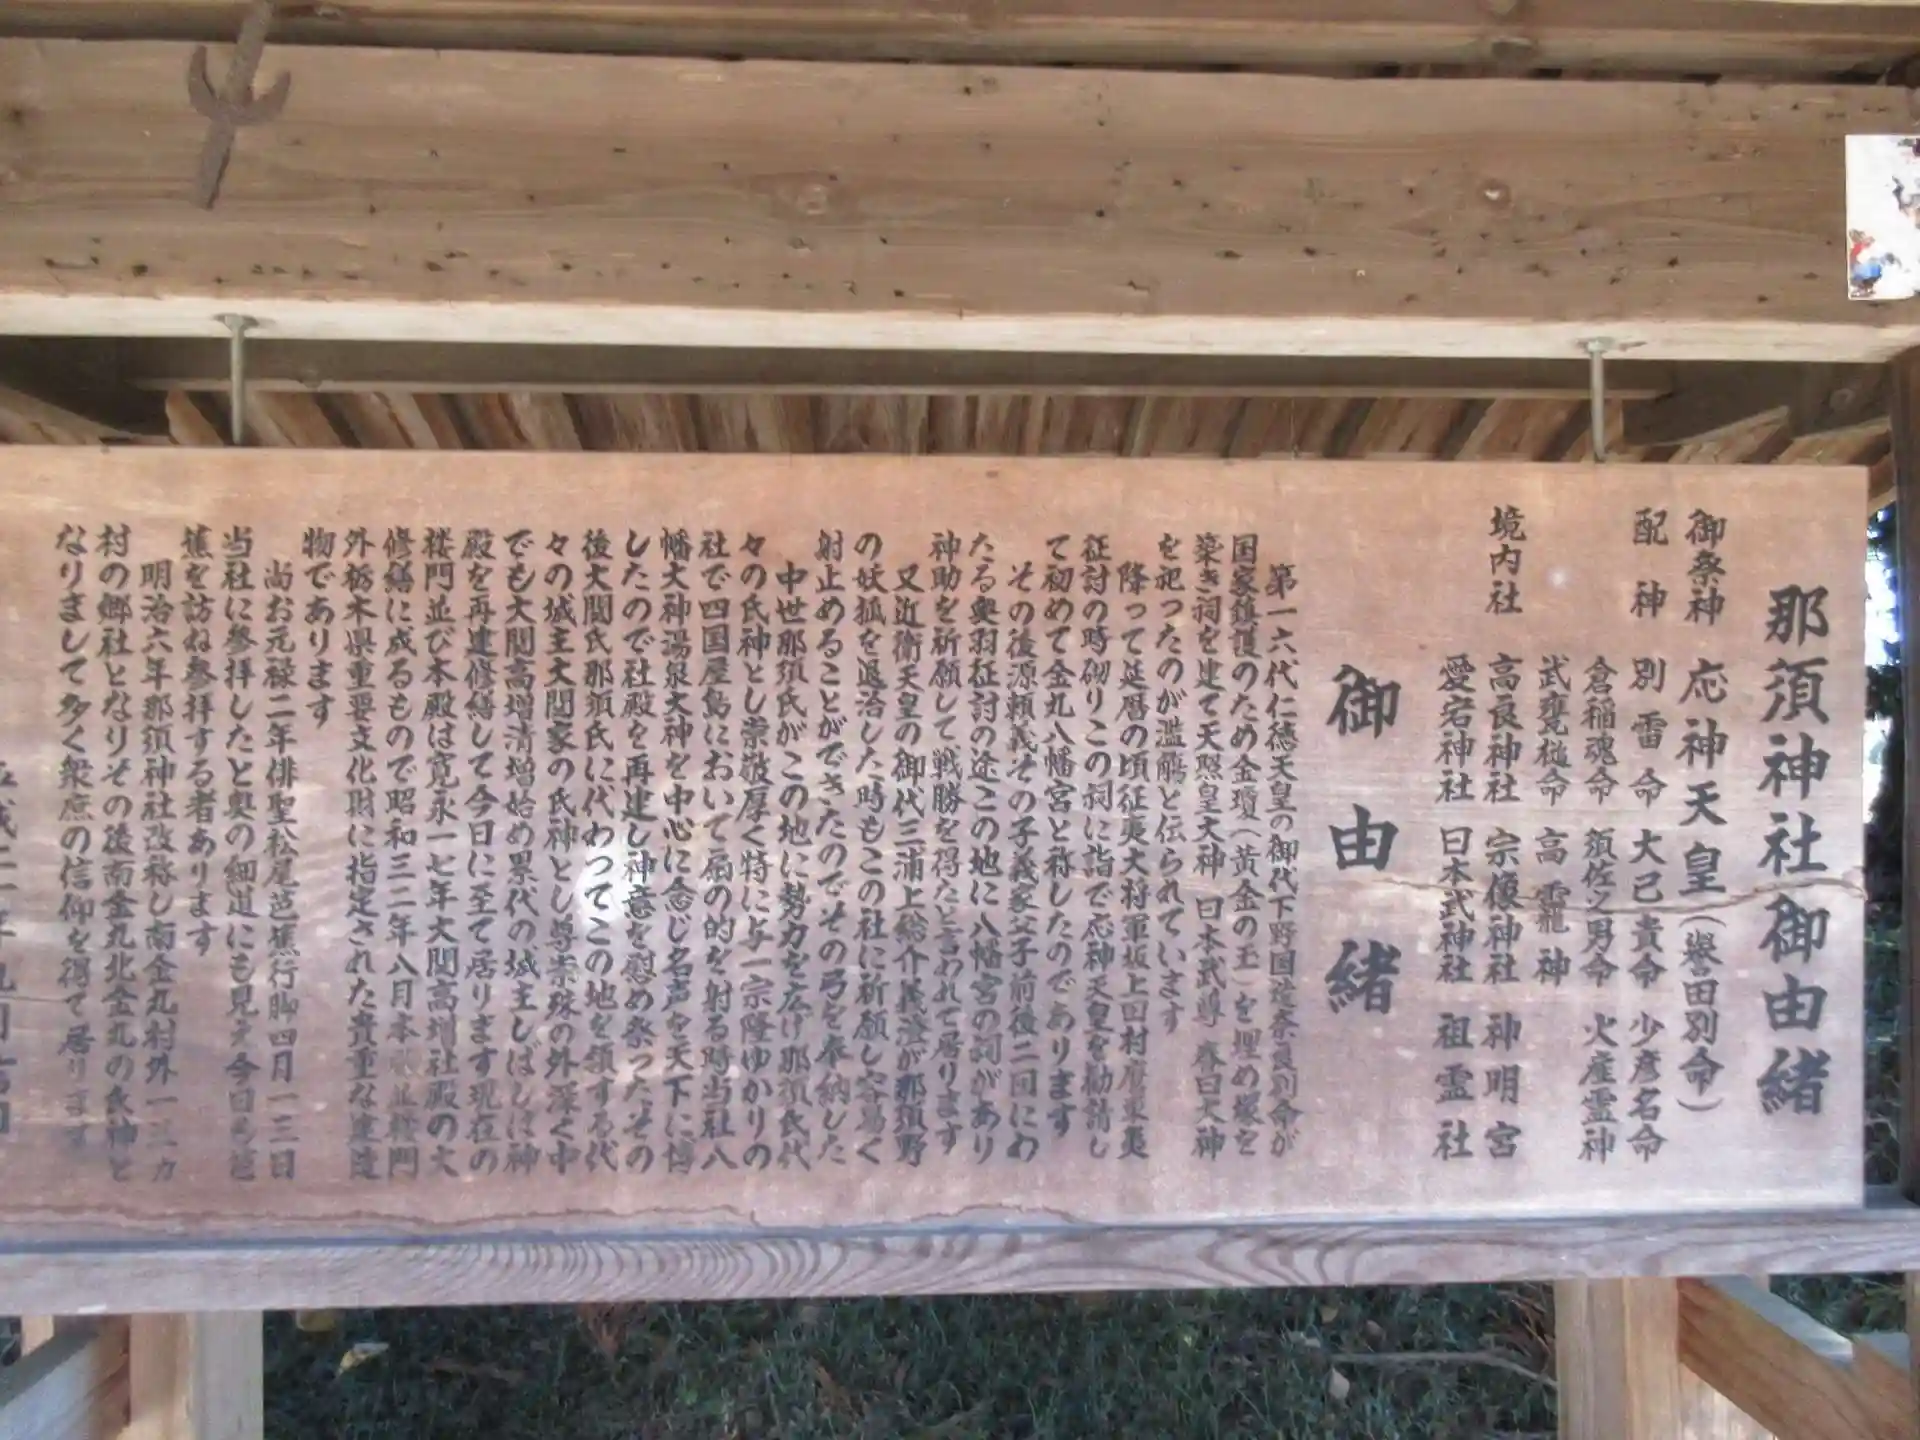 那須神社御由緒
御祭神 応神天皇(誉田別命)
配神 別雷命 大己貴命 少彦名命
倉稲魂命 須佐之男命 火産霊神
武甕槌命 高龗神
境内社 高良神社 宗像神社 神明宮
愛宕神社 日本武神社 祖霊社
御由緒
第一六代仁徳天皇の御代下野国造奈良別命が
国家鎮護のため金瓊(黄金の玉)を埋め塚を
築き祠を建て天照皇大神 日本武尊 春日大神
を祀ったのが濫觴と伝られています
降って延暦の頃征夷大将軍坂上田村麿東夷
征討の時砌りこの祠に詣で応神天皇を勧請し
て初めて金丸八幡宮と称したのであります
その後源頼義その子義家父子前後二回にわ
たる奥羽征討の途この地に八幡宮の祠があり
神助を祈願して戦勝を得たと言われて居ります
又近衛天皇の御代三浦上総介義澄が那須野
の妖狐を退治した時もこの社に祈願し容易く
射止めることができたのでその弓を奉納した
中世那須氏がこの地に勢力を広げ那須氏代
々の氏神とし崇敬厚く特に与一宗隆ゆかりの
社で四国屋島において扇の的を射る時当社八
幡大神湯泉大神を中心に念じ名声を天下に博
したので社殿を再建し神意を慰め祭ったその
後大関氏那須氏に代わってこの地を領する代
々の城主大関家の氏神とし尊崇殊の外深く中
でも大関高増清増始め累代の城主しばしば神
殿を再建修繕して今日に至て居ります現在の
楼門並び本殿は寛永一七年大関高増社殿の大
修繕に成るもので昭和三二年八月本殿並楼門
外栃木県重要文化財に指定された貴重な建造
物であります
尚お元禄二年俳聖松尾芭蕉行脚四月一三日
当社に参拝したと奥の細道にも見え今日も芭
蕉を訪ね参拝する者あります
明治六年那須神社改称し南金丸村外一三カ
村の郷社となりその後南金丸北金丸の氏神と
なりまして多く衆庶の信仰を得て居ります